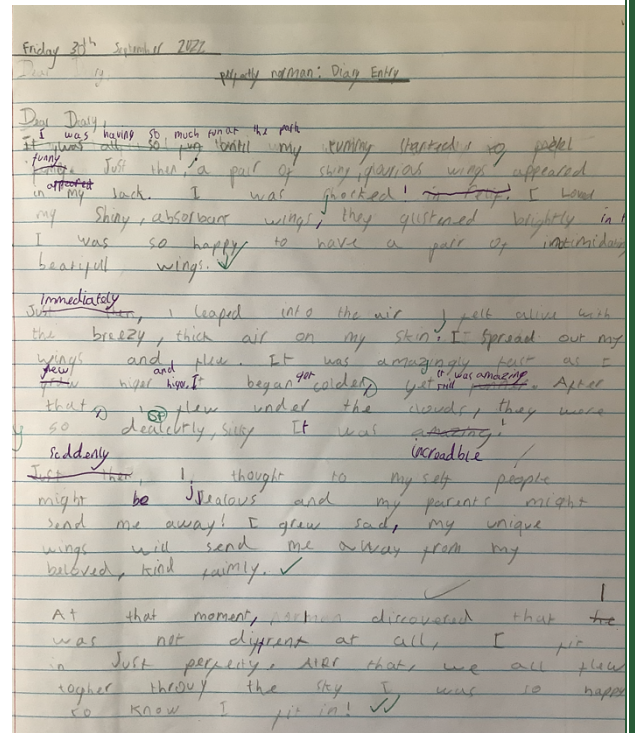 Friday 30th September 2022
Dear
perfectly norman: Diary Entry
Dear Diary,
I was having so much fun at the park
It was all so fun until my tummy started to
funny Just then, a pair of shiny, glarious wings appeared
appeared
in my back. I was shocked! I loved
my shiny, absorbant wings, they glistened brightly in
I was so happy to have a pair of
beatiful wings.
Immediately
Just then, I leaped into the air I felt alive with
the breezy, thick air on my skin. I Spread out my
wings and flew. It was amazingly fast as I
flew and got it was amazing
higer higer, It began colder, yet still After
that, I flew under the clouds, they were
SP
so It was amazing!
Suddenly increadble
Just then, I thought to my self people
might be Jealous and my parents might
send me away! I grew sad, my unique
wings will send me away from my
beloved, kind faimly.
I
At that moment, norman discovered that he
was not diffrent at all, I fit
in Just perfecty. After that, we all flew
togher throuy the sky I was so happy
so know I fit in!